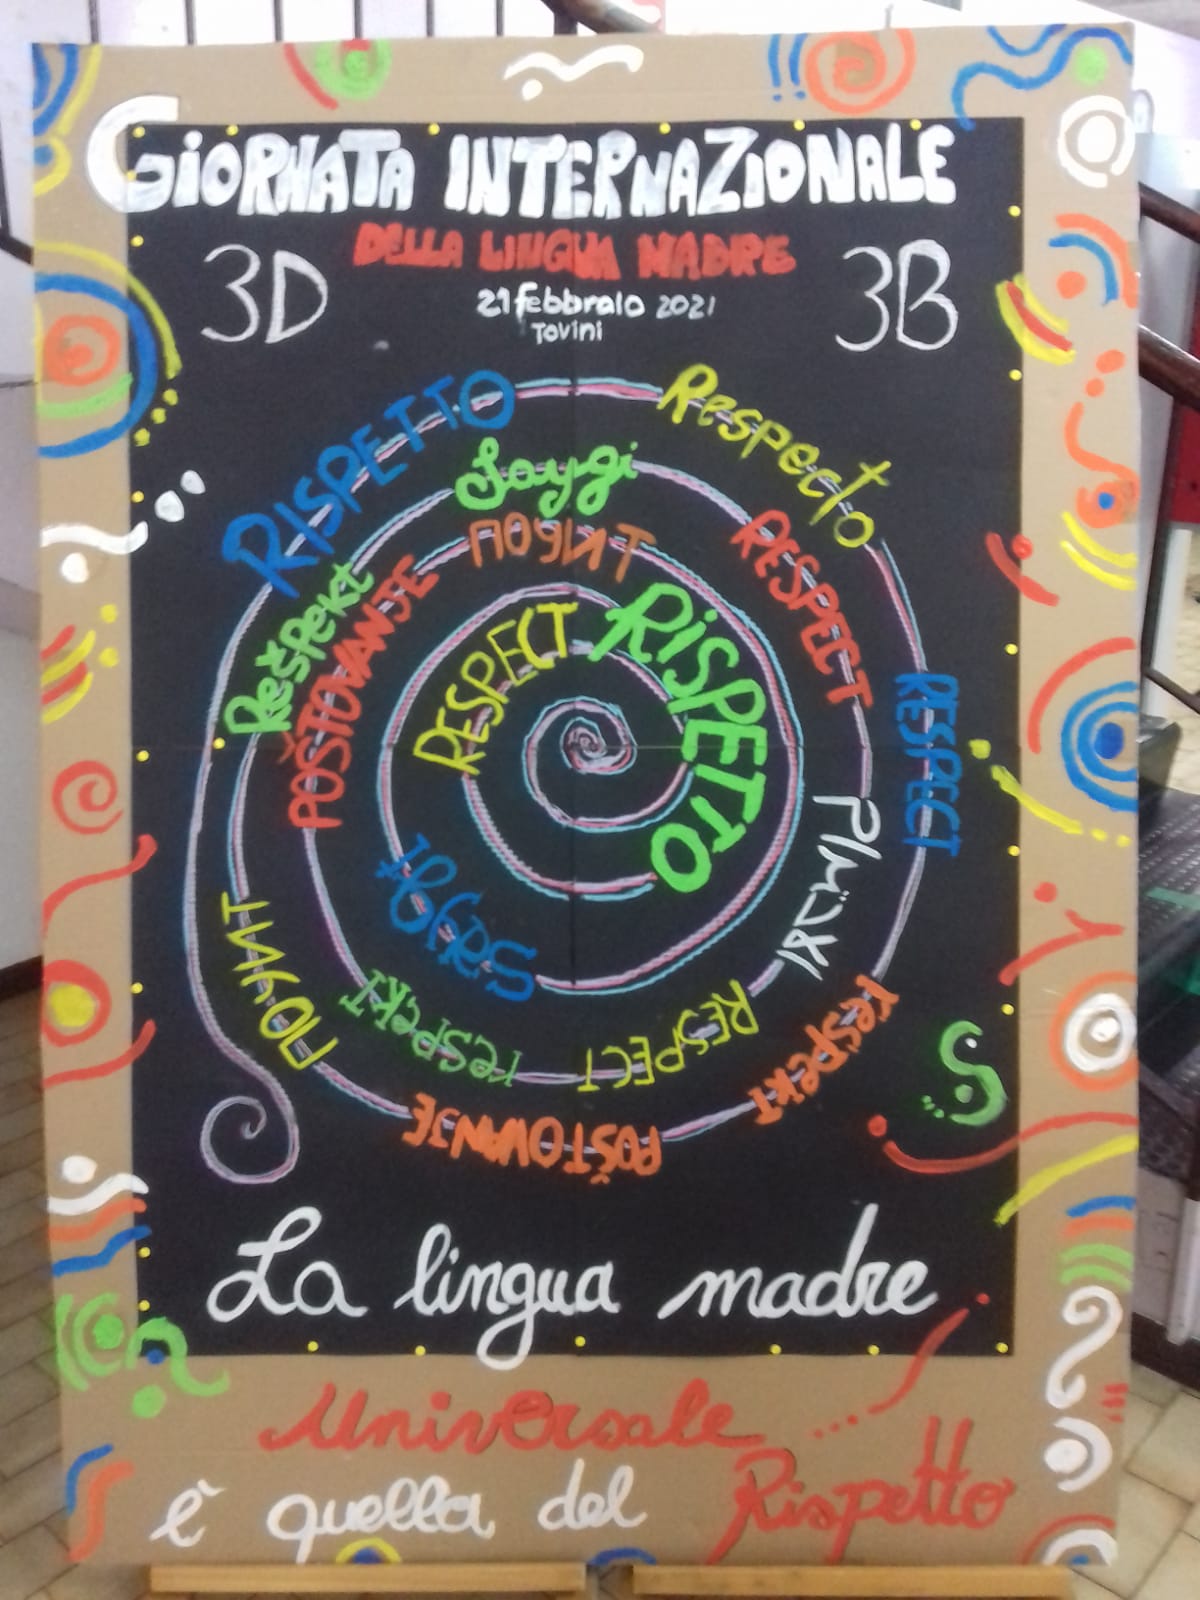 GIORNATA INTERNAZIONALE
DELLA LINGUA MADRE
3D
21 febbraio 2021
Tovini
3B
RISPETTO
Respecto
Saygi
ПОЧИТ
RESPECT
Rešpekt
POŠTOVANJE
RESPECT
RISPETTO
RESPECT
Saygi
respekt
RESPECT
respekt
POŠTOVANJE
ПОЧИТ
La lingua madre
Universale
è quella del Rispetto